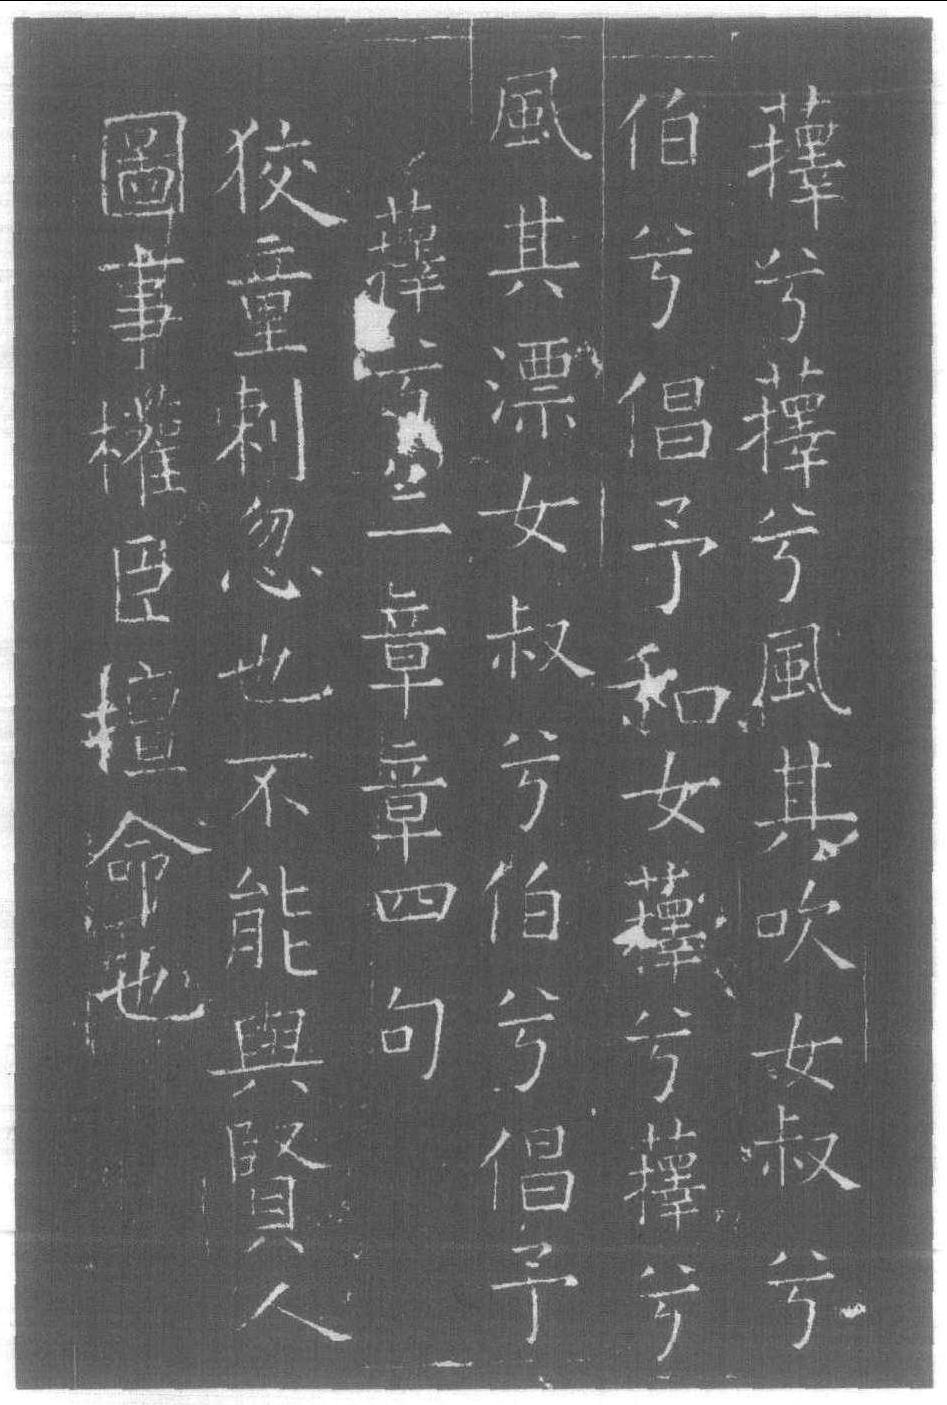 蘀兮蘀兮風其吹女叔兮
伯兮倡予和女蘀兮蘀兮
風其漂女叔兮伯兮倡予
蘀兮二章章四句
狡童刺忽也不能與賢人
圖事權臣擅命也